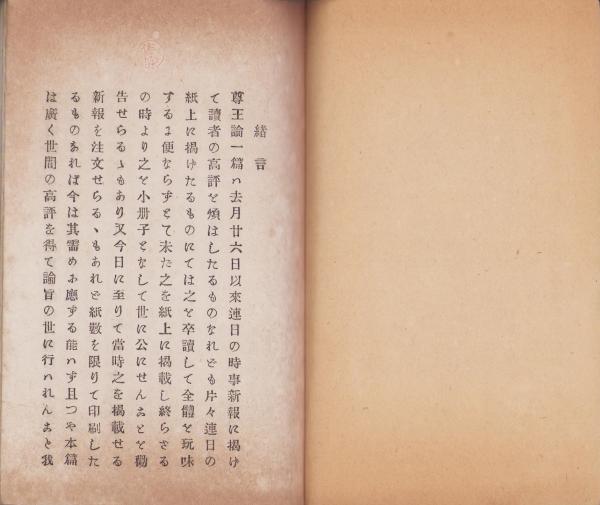 緒言
尊王論一篇ハ去月廿六日以來連日の時事新報に掲け
て讀者の高評を煩はしたるものなれども片々連日の
紙上に掲けたるものにては之を卒讀して全體を玩味
するに便ならずとて未た之を紙上に掲載し終らさる
の時より之を小册子となして世に公にせんことを勸
告せらるゝもあり又今日に至りて當時之を掲載せる
新報を注文せらるゝもあれど紙數を限りて印刷した
るものあれば今は其需めに應ずる能ハず且つや本篇
は廣く世間の高評を得て論旨の世に行ハれんことを我